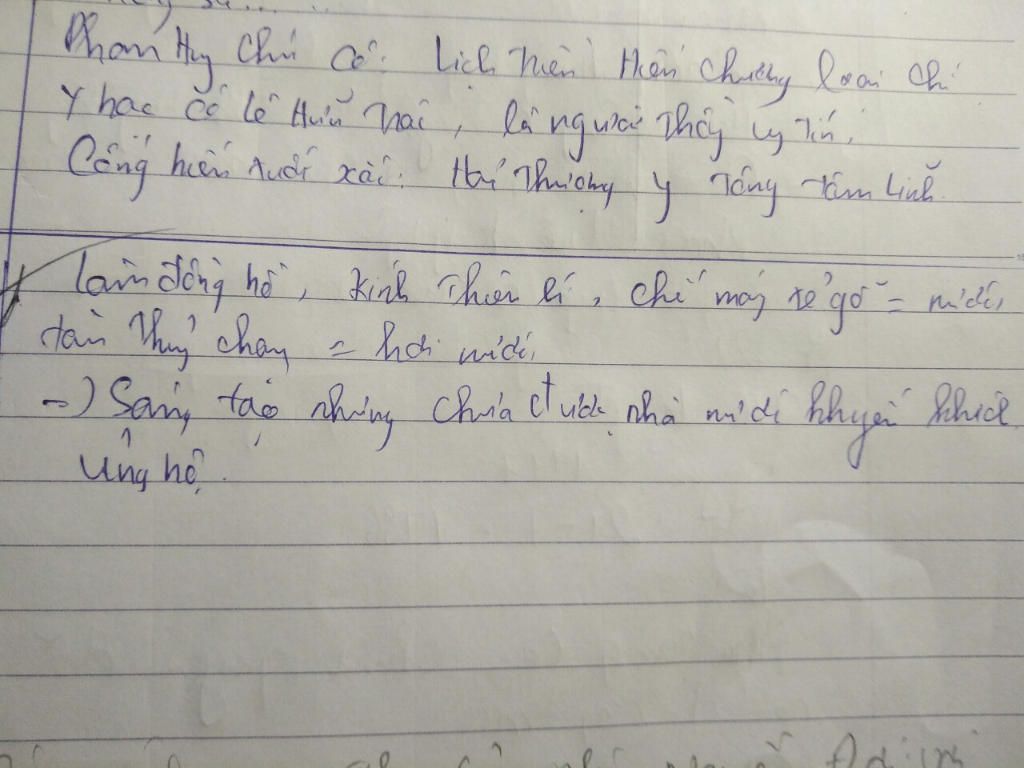 Phan Huy Chú có: Lịch triều Hiến chương loại chí
Y học có Lê Hữu Trác, là người thầy uy tín.
Cống hiến xuất xắc: Hải Thượng y tông tâm lĩnh.
Làm đồng hồ, kính thiên lí, chế máy xẻ gỗ = nước,
tàu thuỷ chạy = hơi nước,
-> Sáng tạo nhưng chưa được nhà nước khuyến khích
ủng hộ.